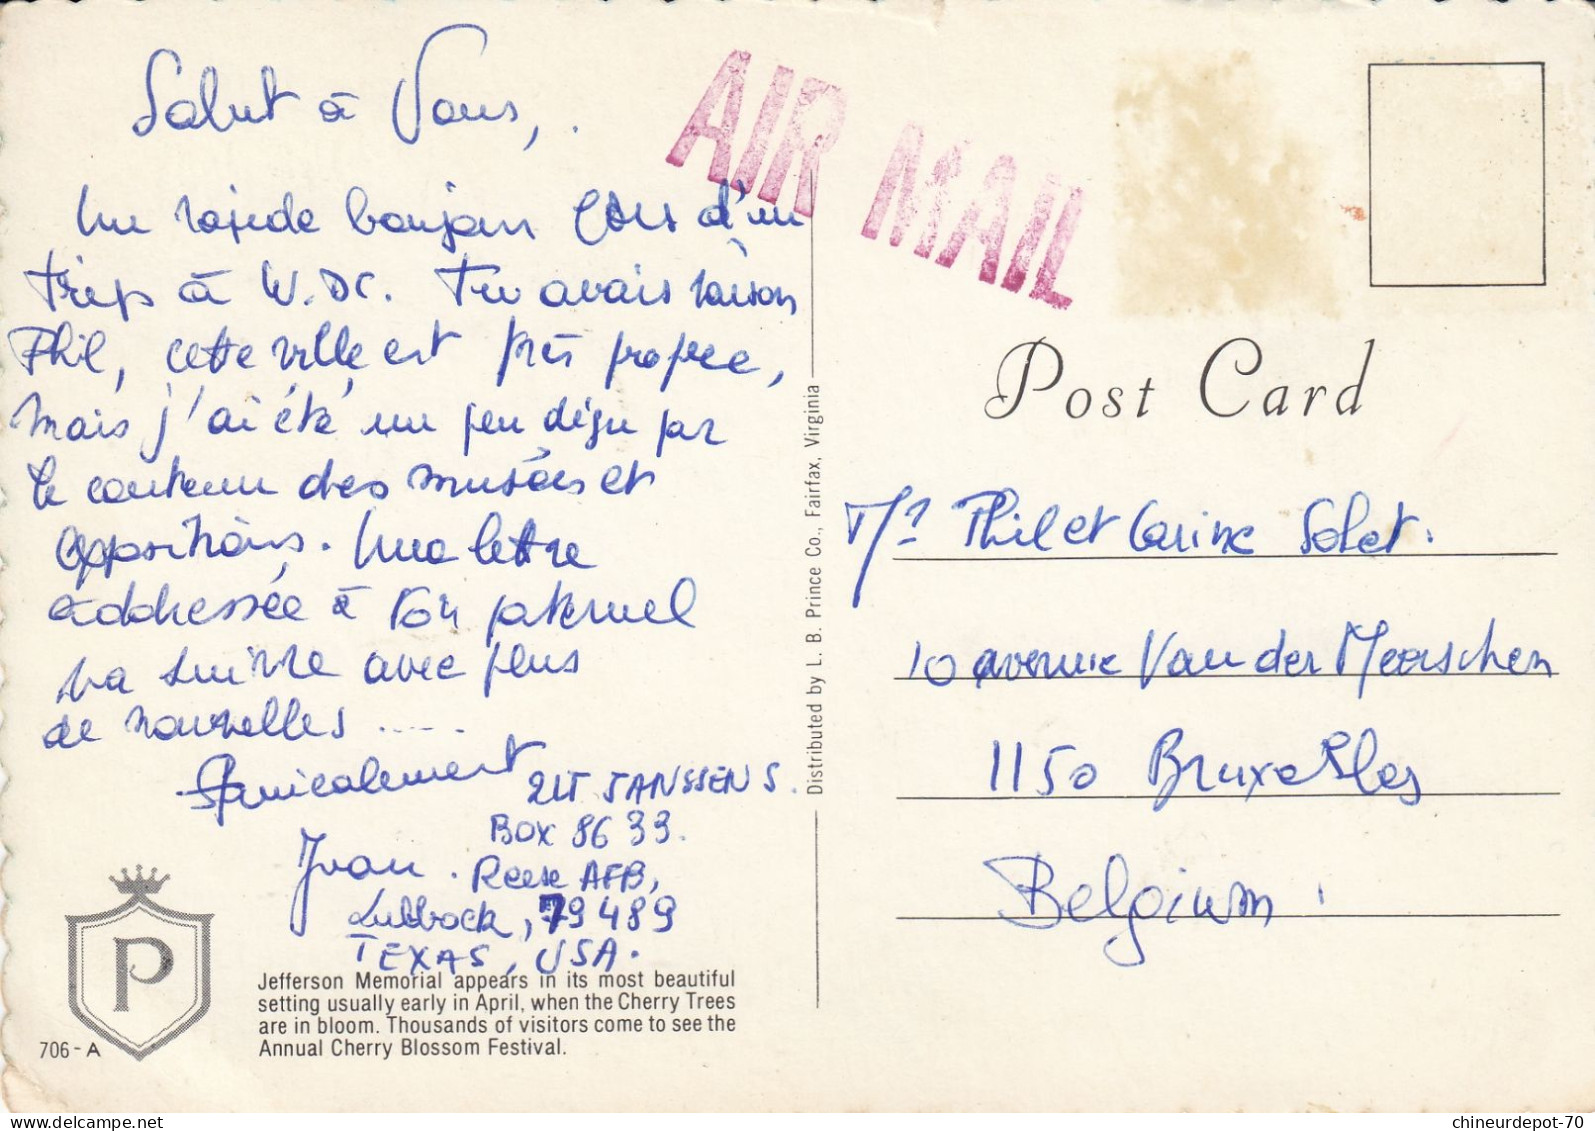 Salut à Vous,
Un rapide bonjour lors d'un
trip à W.DC. Tu avais raison
Phil, cette ville est très propre,
mais j'ai été un peu déçu par
le contenu des musées et
expositions. Une lettre
addressée à ton paternel
va suivre avec plus
de nouvelles .....
Amicalement
Yvan.
2LT JANSSENS.
BOX 8633.
Reese AFB,
Lubbock, 79489
TEXAS, USA.
P
706-A
Jefferson Memorial appears in its most beautiful
setting usually early in April, when the Cherry Trees
are in bloom. Thousands of visitors come to see the
Annual Cherry Blossom Festival.
Distributed by L. B. Prince Co., Fairfax, Virginia
AIR MAIL
Post Card
Mr Phil et Carine Solet.
10 avenue Van der Meerschen
1150 Bruxelles
Belgium.
chineurdepot-70